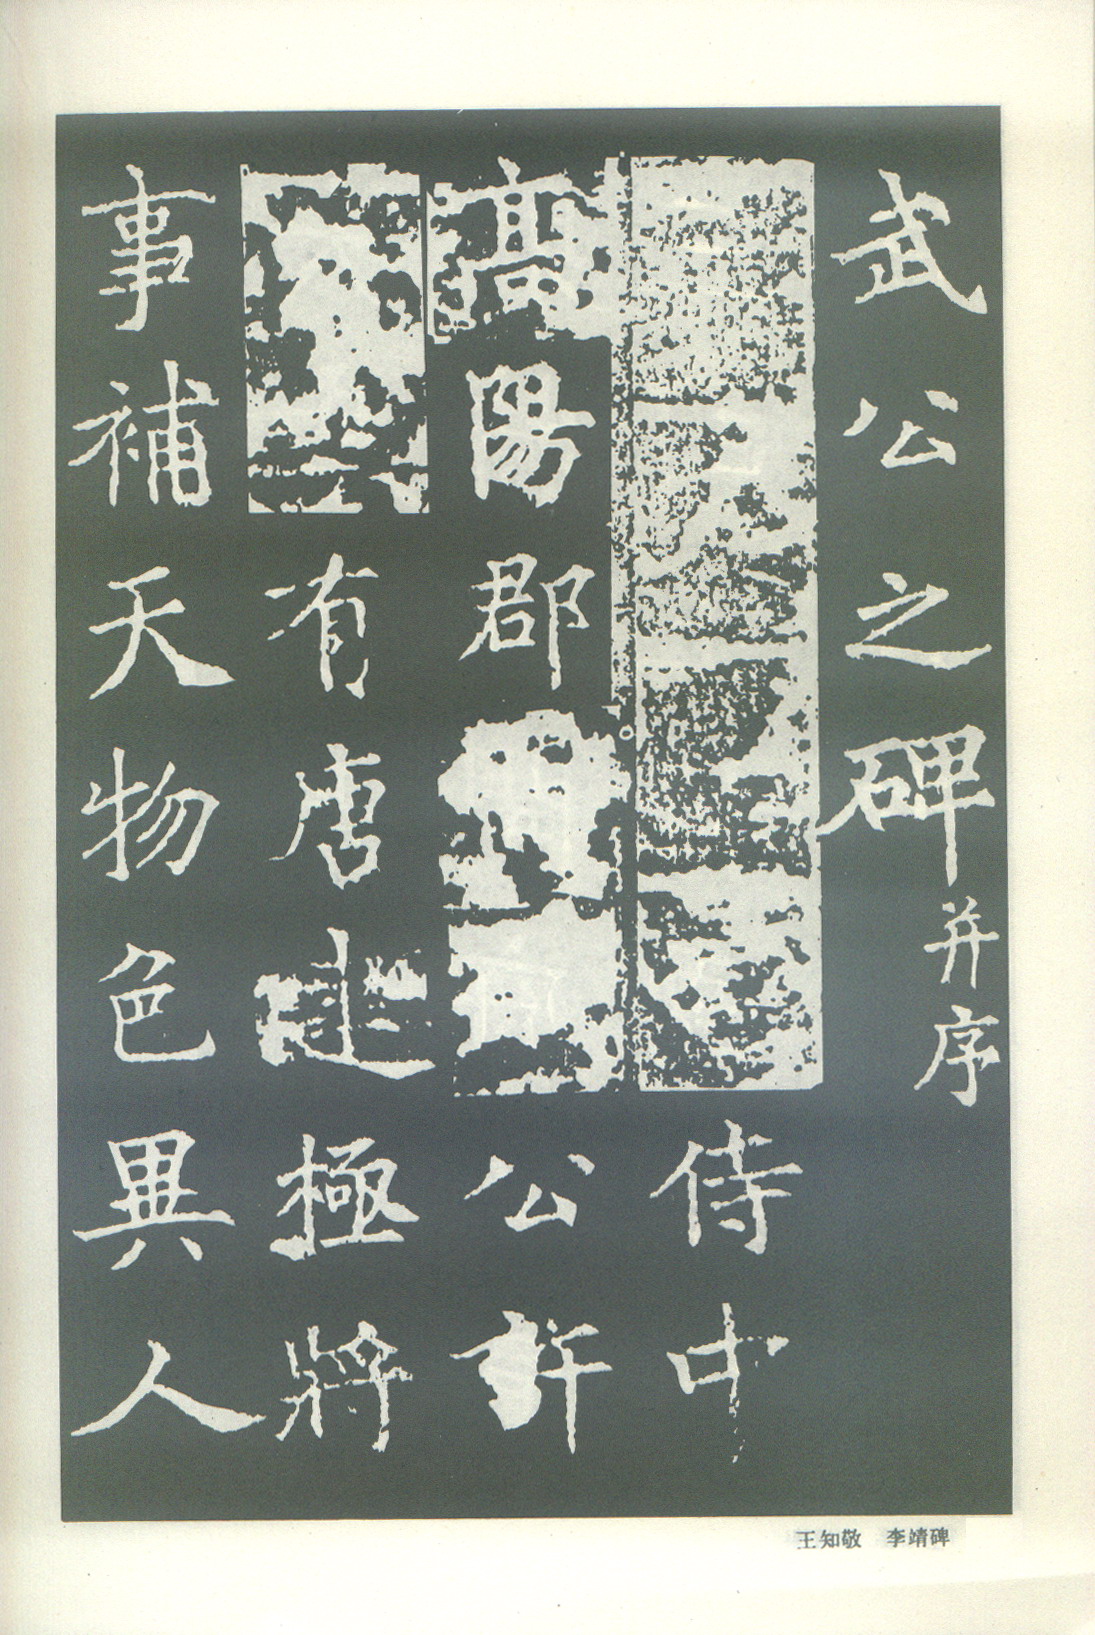 武公之碑并序
侍中
高陽郡開國公許
有唐建極將
事補天物色異人
王知敬 李靖碑